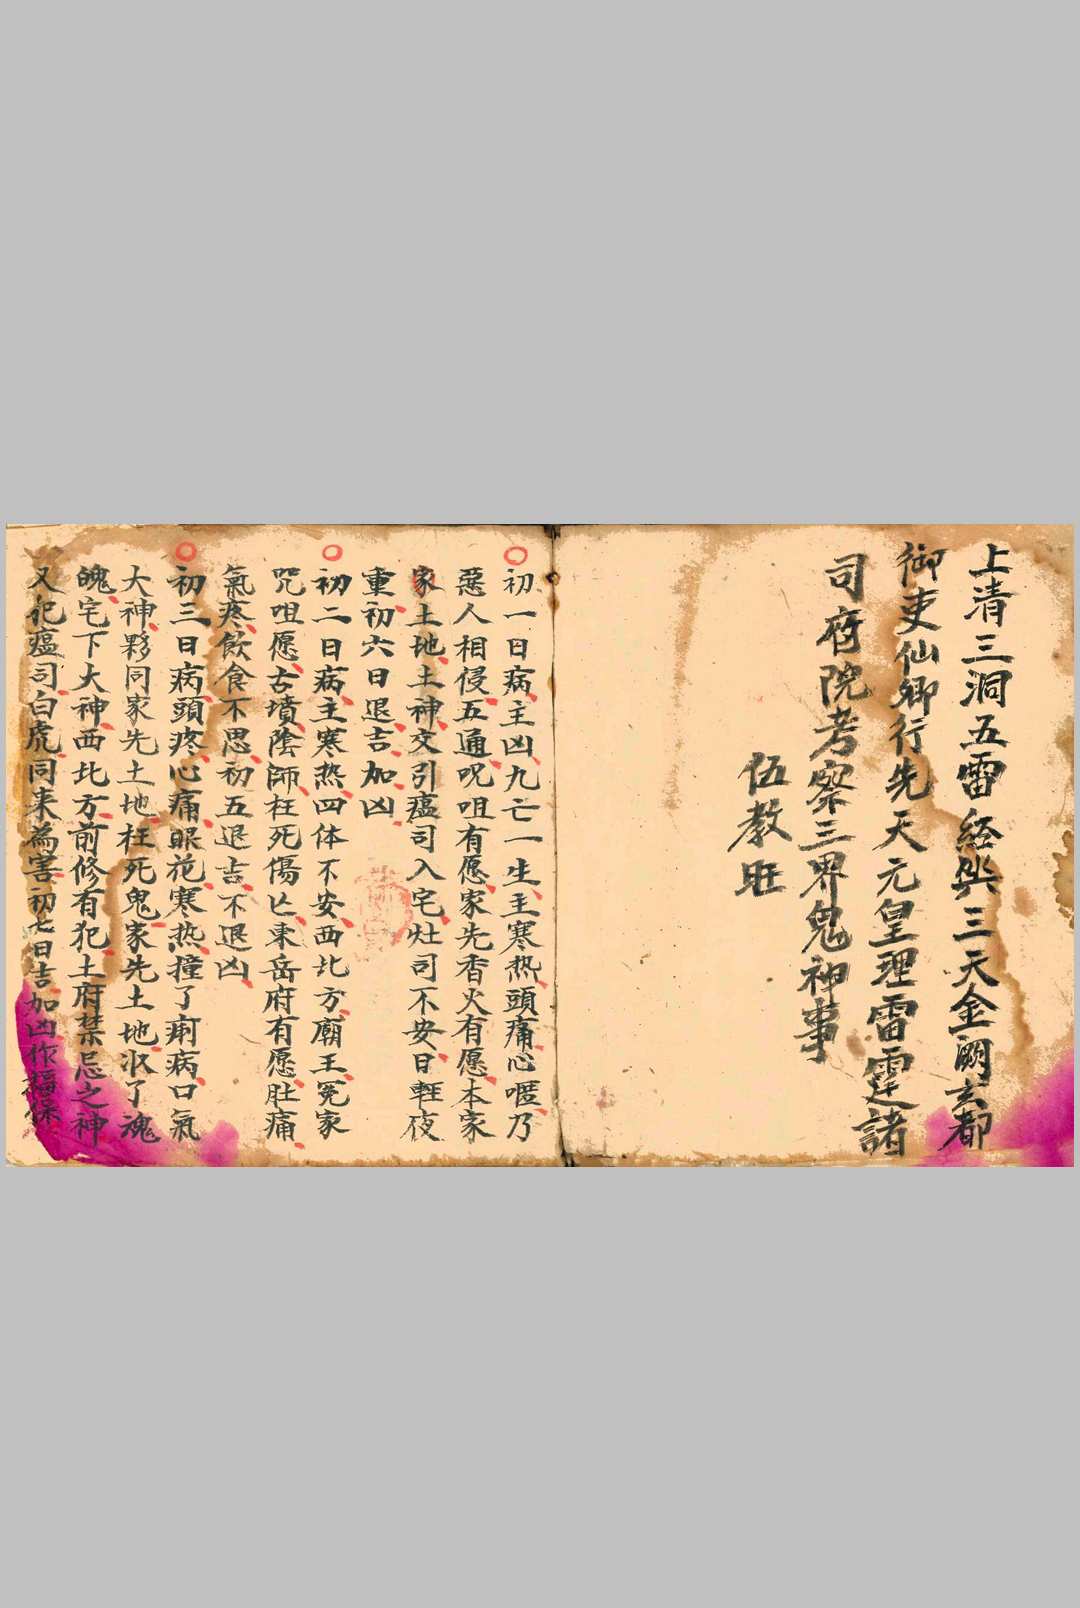 上清三洞五雷經籙三天金闕玄都
御吏仙卿行先天元皇理雷霆諸
司府院考察三界鬼神事
伍教旺
初一日病主凶九亡一生主寒热頭痛心嘔乃
惡人相侵五通呪咀有愿家先香火有愿本家
家土地土神交引瘟司入宅灶司不安日軽夜
重初六日退吉加凶
初二日病主寒热四体不安西北方廟王冤家
咒咀愿古墳陰師枉死傷亡東岳府有愿肚痛
氣疼飲食不思初五退吉不退凶
初三日病頭疼心痛眼花寒热撞了痢病口氣
大神夥同家先土地枉死鬼家先土地收了魂
魄宅下大神西北方前修有犯土府禁忌之神
又犯瘟司白虎同来為害初七日吉加凶作福保